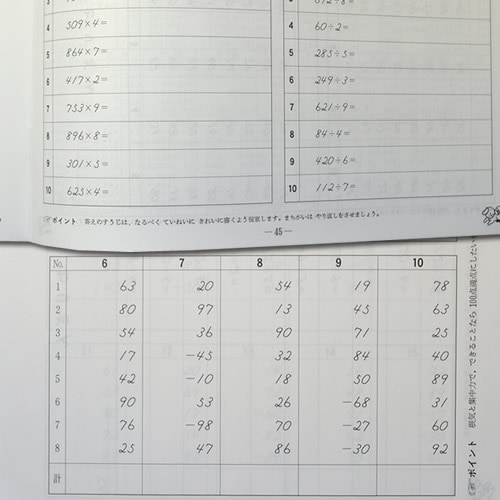 4 509×4= 4 60÷2=
5 864×7= 5 285÷5=
6 417×2= 6 249÷3=
7 753×9= 7 621÷9=
8 896×8= 8 84÷4=
9 301×5= 9 420÷6=
10 625×4= 10 112÷7=
ポイント 答えのすう字は、なるべく ていねいに きれいに書くよう指導します。まちがいは やり直しをさせましょう。
—45—
No. 6 7 8 9 10
1 63 20 54 19 78
2 80 97 13 45 63
3 54 36 90 71 25
4 17 −45 32 84 40
5 42 −10 18 50 89
6 90 53 26 −68 31
7 76 −98 70 −27 60
8 25 47 86 −30 92
計
ポイント 根気と集中力で、できることなら 100点満点にしたい